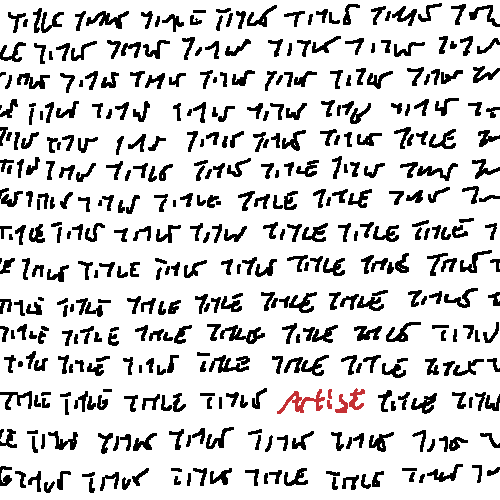 TITLE TITLE TITLE TITLE TITLE TITLE
TITLE TITLE TITLE TITLE TITLE TITLE
TITLE TITLE TITLE TITLE TITLE TITLE
TITLE TITLE TITLE TITLE TITLE TITLE
TITLE TITLE TITLE TITLE TITLE TITLE
TITLE TITLE TITLE TITLE TITLE TITLE
TITLE TITLE TITLE TITLE TITLE TITLE
TITLE TITLE TITLE TITLE TITLE TITLE TITLE
TITLE TITLE TITLE TITLE TITLE TITLE TITLE
TITLE TITLE TITLE TITLE TITLE TITLE TITLE
TITLE TITLE TITLE TITLE TITLE TITLE TITLE
TITLE TITLE TITLE TITLE TITLE TITLE TITLE
TITLE TITLE TITLE TITLE Artist TITLE TITLE
TITLE TITLE TITLE TITLE TITLE TITLE
TITLE TITLE TITLE TITLE TITLE TITLE